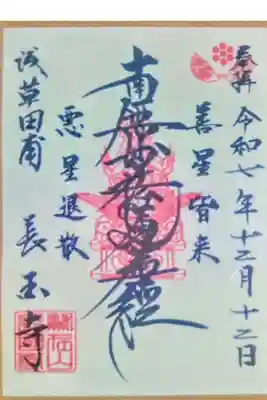 奉拝 令和七年十二月十二日
善星皆来
南無妙法蓮華経
悪星退散
浅草田甫 長国寺